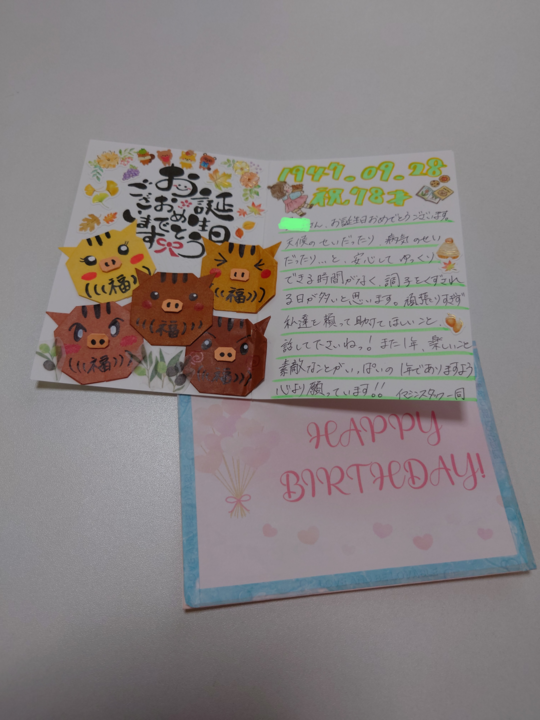 お誕生日
おめでとう
ございます
福
福
福
福
福
1947.09.28
祝78才
さん、お誕生日おめでとうございます
天候のせいだったり、病気のせい
だったり…と、安心して ゆっくり
できる時間がなく、調子をくずされ
る日が多いと思います。頑張りすぎず
私達を頼って助けてほしいこと、
話して下さいねっ！また1年、楽しいこと
素敵なことがいっぱいの1年でありますよう
心より願っています!! スタッフ一同
HAPPY
BIRTHDAY!